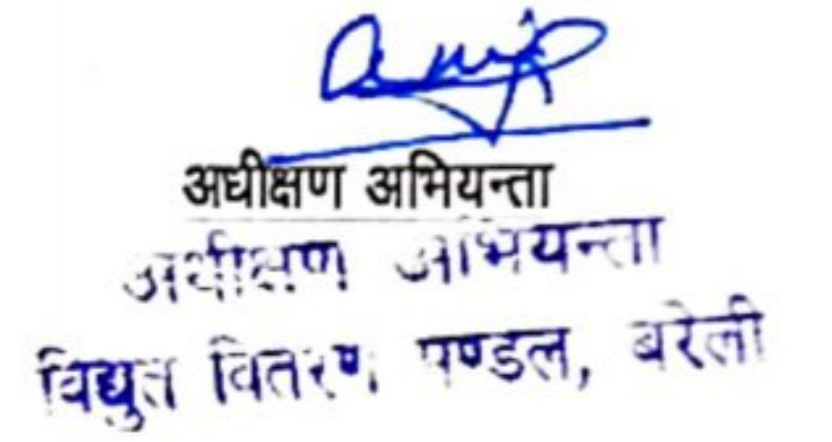 अधीक्षण अभियन्ता
अधीक्षण अभियन्ता
विद्युत वितरण मण्डल, बरेली